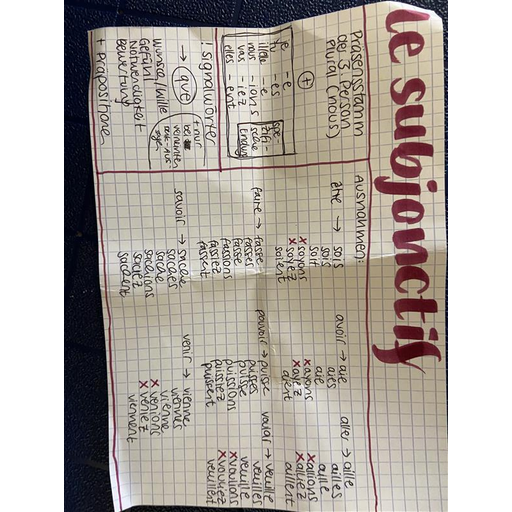 le subjonctif
Präsensstamm
der 3. Person
Plural (nous)
+
je - e
tu - es
il/elle - e
nous - ions
vous - iez
elles - ent
spe-
zifi-
sche
Endung
! Signalwörter
→ que
Wunsch/Wille
Gefühl
Notwendigkeit
Bewertung
+ nur
bei
verneinten
+ Präpositionen
Ausnahmen:
être → sois
sois
soit
x soyons
x soyez
soient
avoir → aie
aies
aie
x ayons
x ayez
aient
aller → aille
ailles
aille
x allions
x alliez
aillent
faire → fasse
fasses
fasse
fassions
fassiez
fassent
pouvoir → puisse
puisses
puisse
puissions
puissiez
puissent
vouloir → veuille
veuilles
veuille
x voulions
x vouliez
veuillent
savoir → sache
saches
sache
sachions
sachiez
sachent
venir → vienne
viennes
vienne
x venions
x veniez
viennent